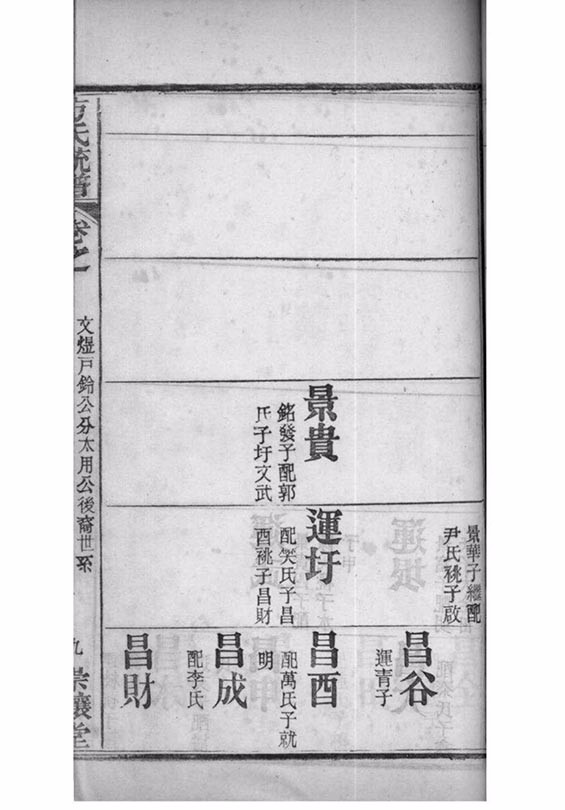 景華子繼配
尹氏祧子啟
昌谷
運青子
景貴
銘發子配郭
氏子圩文武
運圩
配笑氏子昌
酉祧子昌財
昌酉
配萬氏子就
明
昌成
配李氏
昌財
方氏統譜
卷之一
文煜戶鈴公分太用公後裔世系
九
崇讓堂